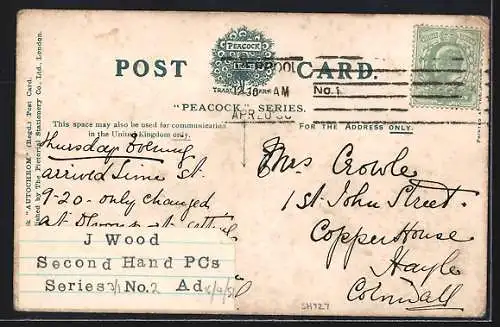 PEACOCK
TRADE MARK
POST CARD.
"PEACOCK" SERIES.
LIVERPOOL
12.30 AM
APR 20
No. 1
This space may also be used for communication
in the United Kingdom only.
FOR THE ADDRESS ONLY.
"AUTOCHROM" (Regd.) Post Card.
Published by The Pictorial Stationery Co., Ltd., London.
Thursday Evening
arrived Lime St.
9-20- only changed
at
J Wood
Second Hand PCs
Series 2/1 No.2 Ad
Mrs Crowle
1 St. John Street.
Copperhouse
Hayle
Cornwall
SH727